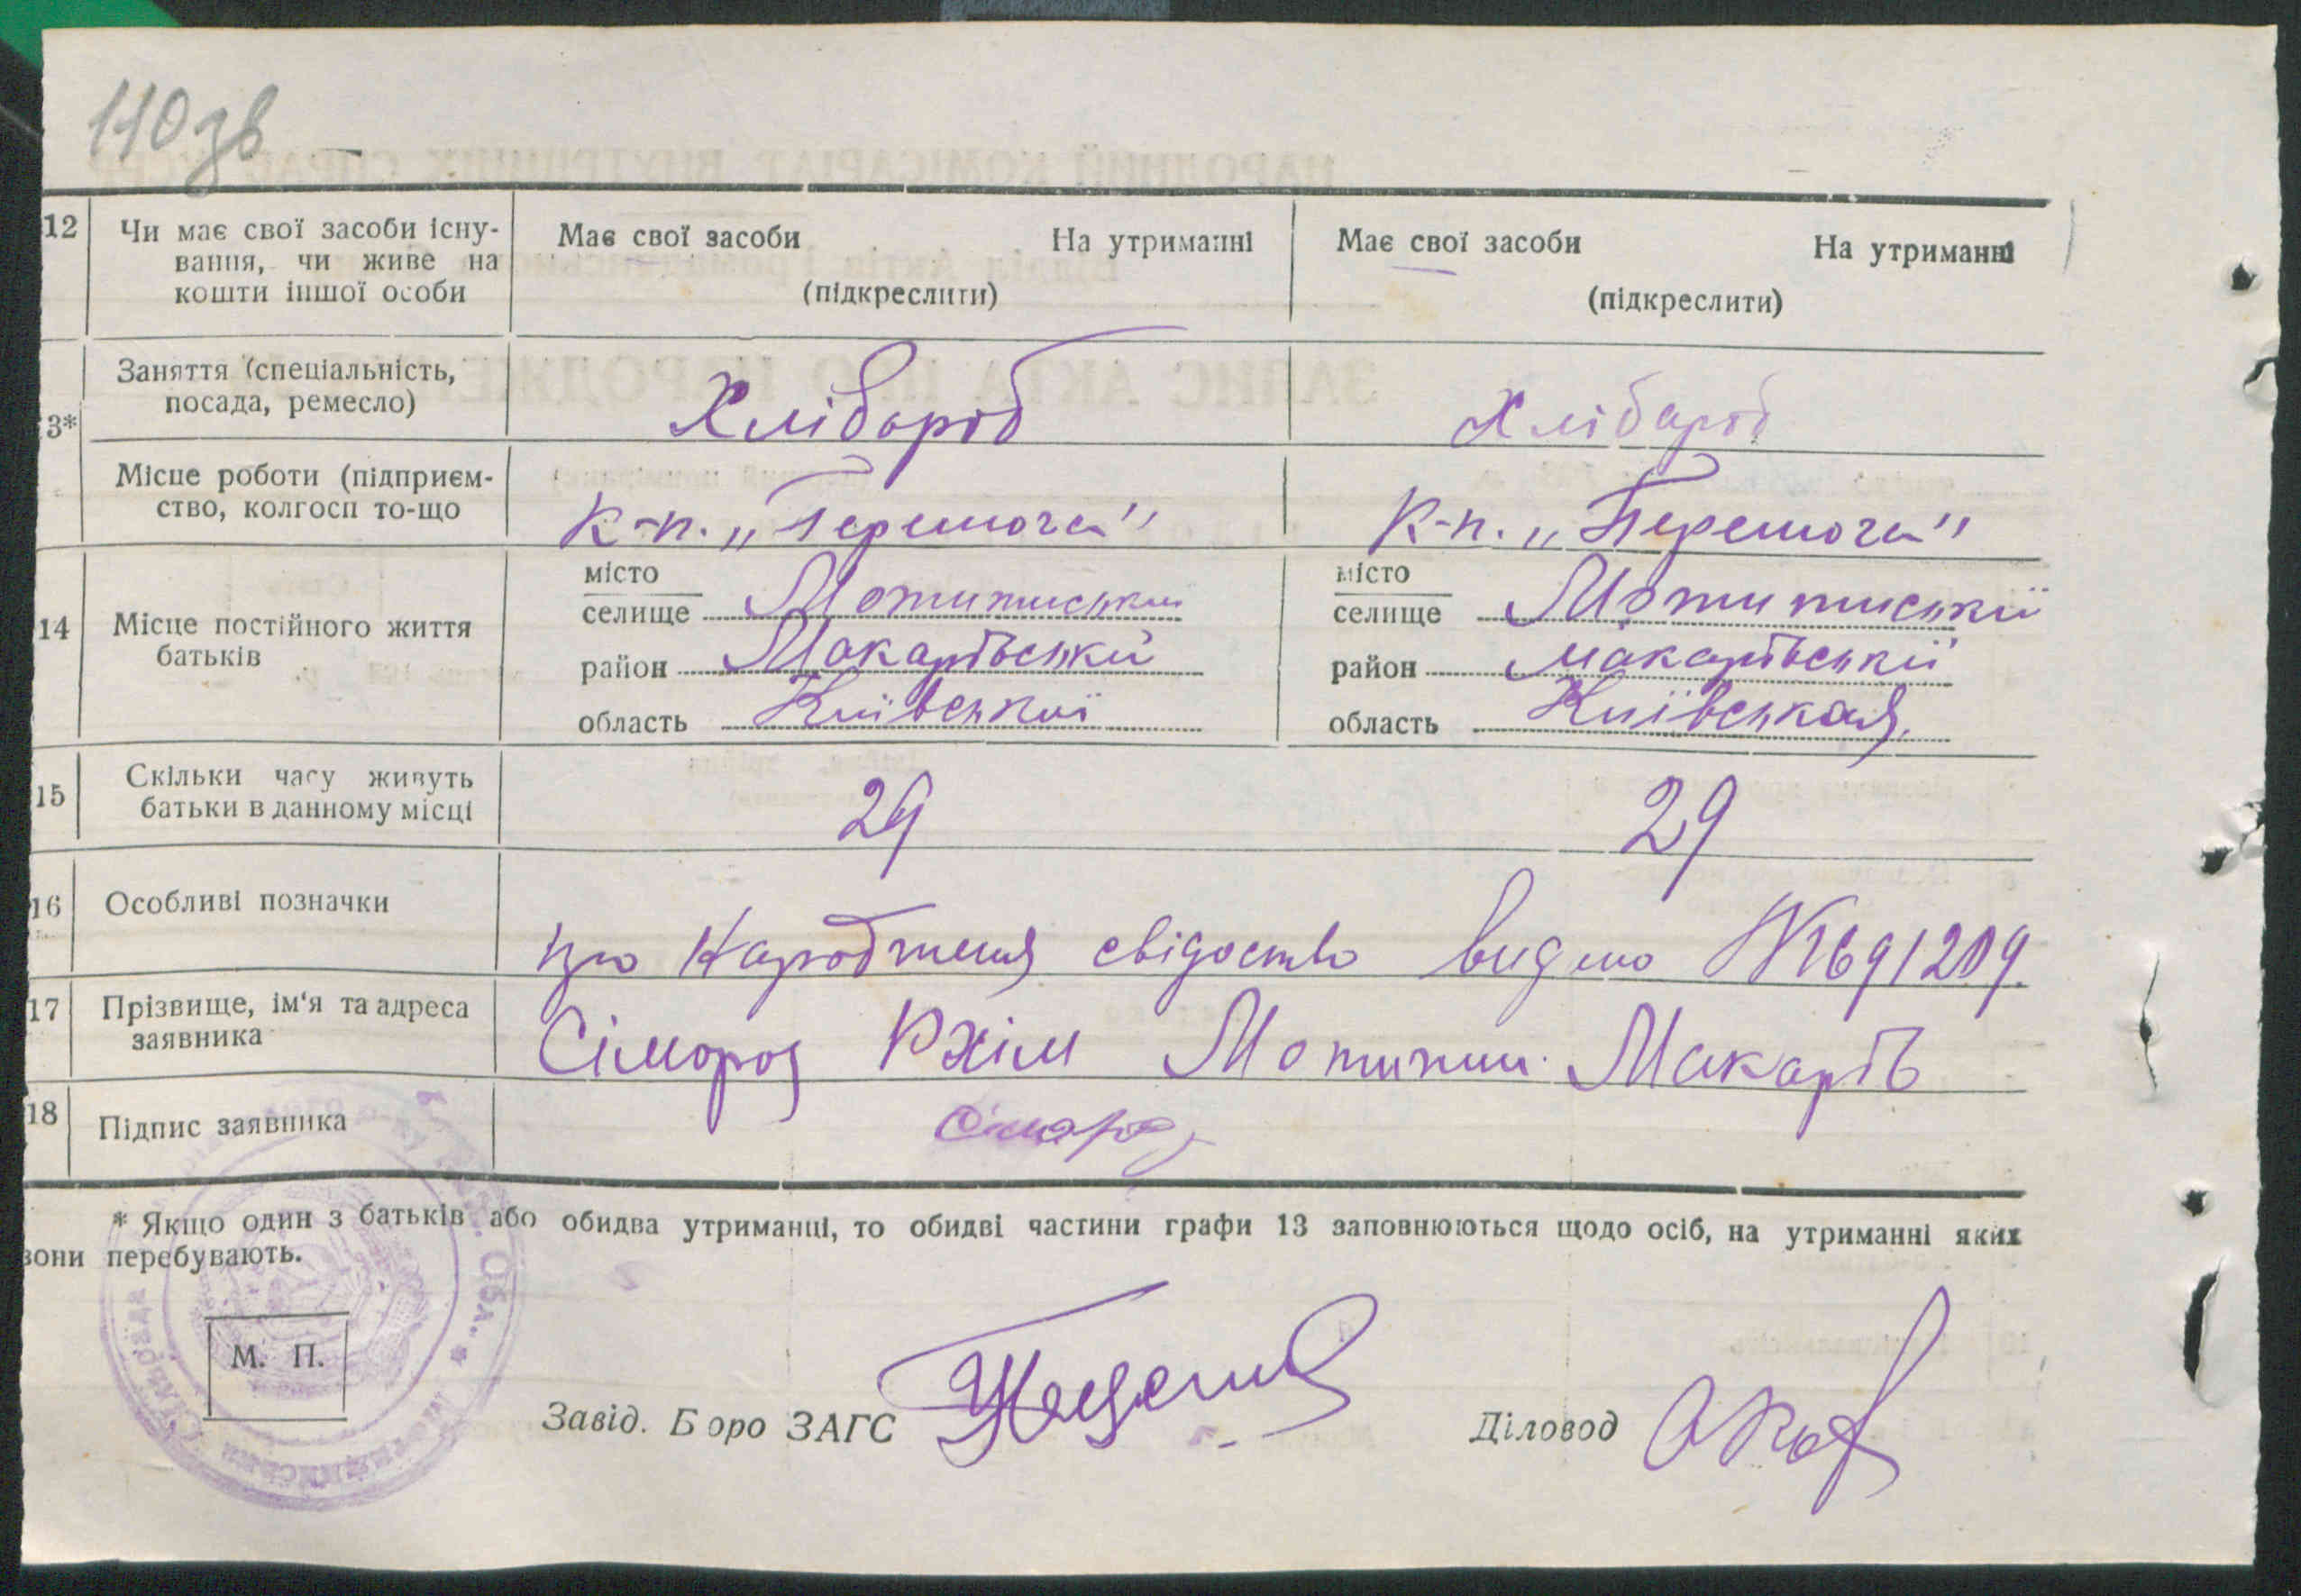 110 зв
12 Чи має свої засоби існу-
вання, чи живе на
кошти іншої особи
Має свої засоби На утриманні
(підкреслити)
Має свої засоби На утриманні
(підкреслити)
13*
Заняття (спеціальність,
посада, ремесло)
Хлібороб
Хлібороб
Місце роботи (підприєм-
ство, колгосп то-що
К-п. „Перемога"
К-п. „Перемога"
14 Місце постійного життя
батьків
місто
селище Мотижиський
район Макарівський
область Київської
місто
селище Мотижиській
район Макарівській
область Київська
15 Скільки часу живуть
батьки в данному місці
29
29
16 Особливі позначки
про Народження свідоство видано № 691209.
17 Прізвище, ім'я та адреса
заявника
Сімороз Юхім Мотижин. Макарів
18 Підпис заявника
Сімороз
* Якщо один з батьків або обидва утриманці, то обидві частини графи 13 заповнюються щодо осіб, на утриманні яких
вони перебувають.
М. П.
Завід. Бюро ЗАГС
Діловод